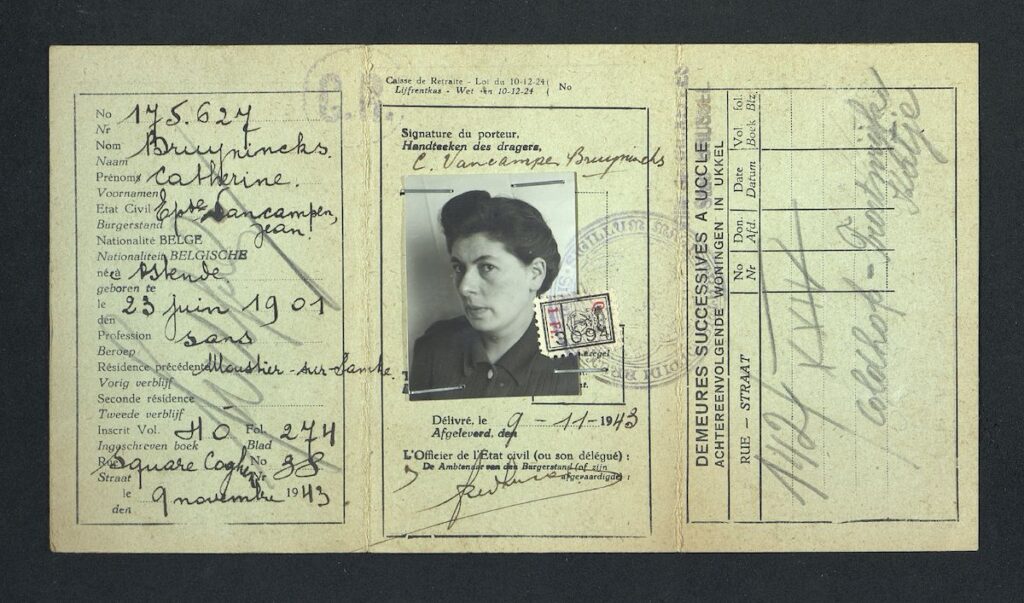 No 175.627
Nr
Nom Bruynincks.
Naam
Prénoms Catherine.
Voornamen
Etat Civil Epse Vancampen,
Burgerstand Jean.
Nationalité BELGE
Nationaliteit BELGISCHE
né à Ostende.
geboren te
le 23 juin 1901
den
Profession sans
Beroep
Résidence précédente Moustier-sur-Sambre.
Vorig verblijf
Seconde résidence
Tweede verblijf
Inscrit Vol. HO Fol. 274
Ingeschreven boek Blad
Rue Square Coghen No 38
Straat Nr
le 9 novembre 1943.
den
C.R.
Caisse de Retraite - Loi du 10-12-24 No
Lijfrentkas - Wet van 10-12-24
Signature du porteur,
Handteeken des dragers,
C. Vancampen Bruynincks
1 Fr.
Délivré, le 9-11-1943
Afgeleverd, den
L'Officier de l'Etat civil (ou son délégué) :
De Ambtenaar van den Burgerstand (of zijn
afgevaardigde) :
DEMEURES SUCCESSIVES A UCCLE
ACHTEREENVOLGENDE WONINGEN IN UKKEL
RUE - STRAAT
No Nr
Don. Afd.
Date Datum
Vol. Boek
fol. Blz